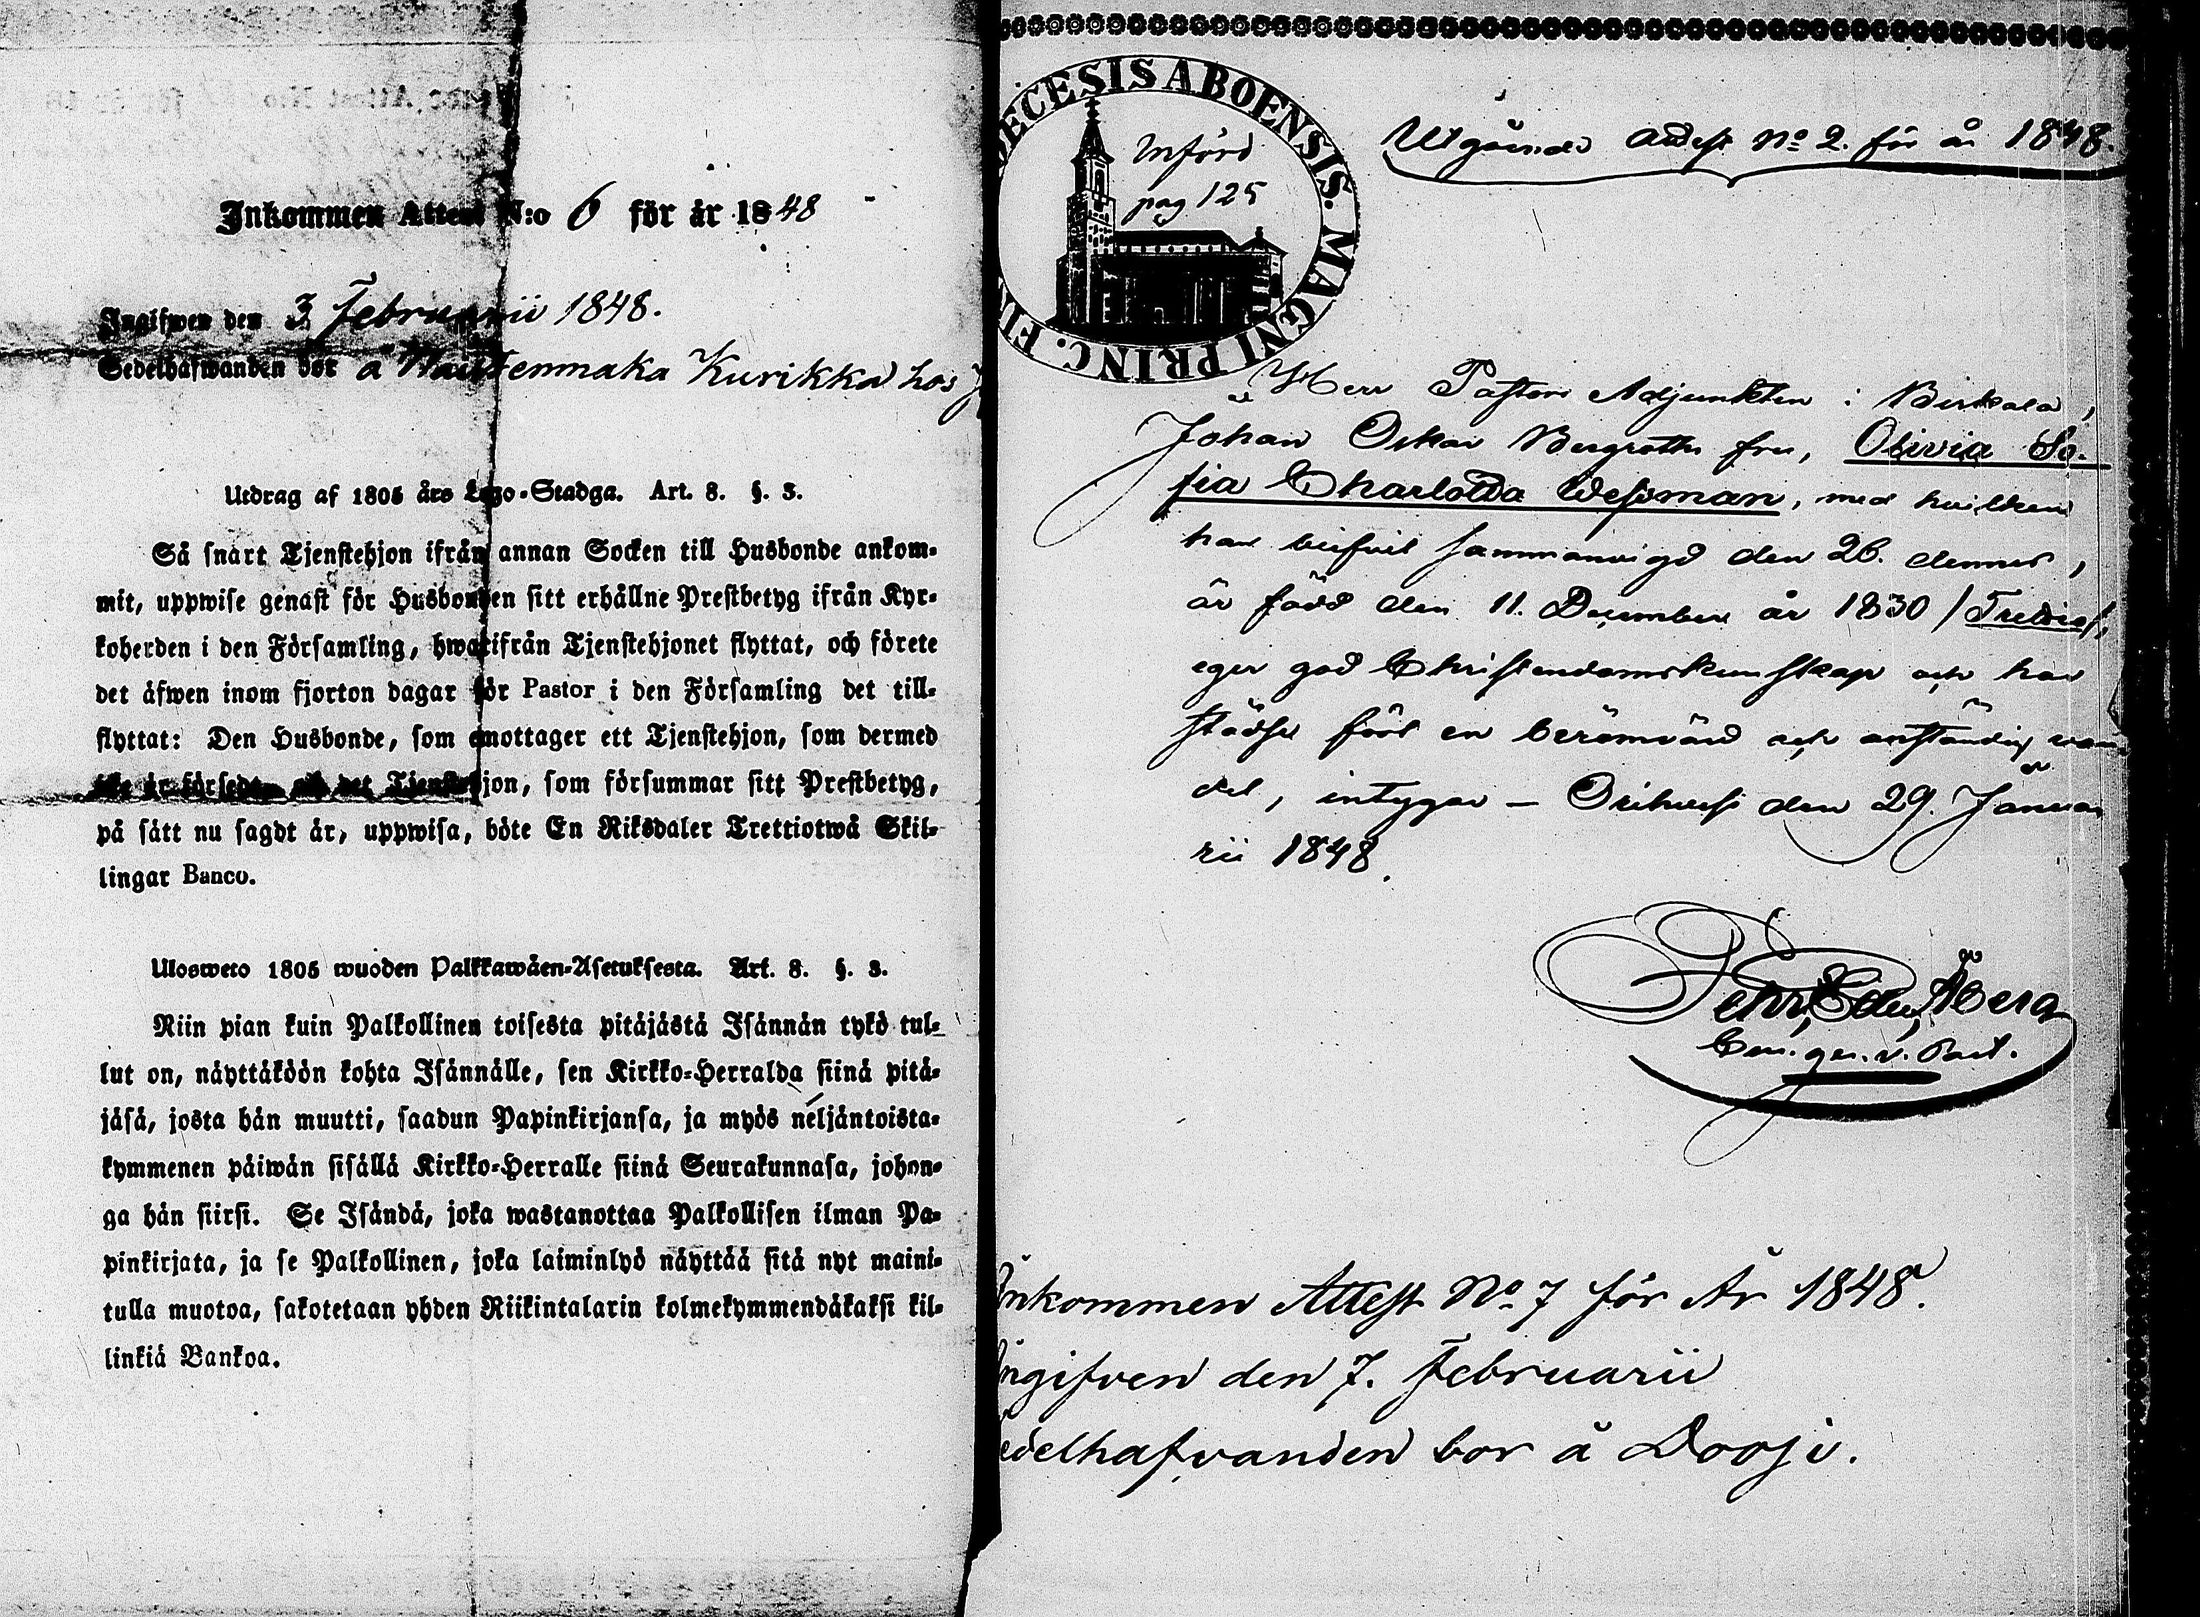 Inkommen Attest N:o 6 för år 1848
Ingifwen den 3 Februarii 1848.
Sedelhafwanden bor å Kurikka hos
Utdrag af 1805 års Lego-Stadga. Art. 8. §. 3.
Så snart Tjenstehjon ifrån annan Socken till Husbonde ankom-
mit, uppwise genast för Husbonden sitt erhållne Prestbetyg ifrån Kyr-
koherden i den Församling, hwarifrån Tjenstehjonet flyttat, och förete
det äfwen inom fjorton dagar för Pastor i den Församling det till-
flyttat: Den Husbonde, som emottager ett Tjenstehjon, som dermed
icke är försedt, och det Tjenstehjon, som försummar sitt Prestbetyg,
på sätt nu sagdt är, uppwisa, böte En Riksdaler Trettiotwå Skil-
lingar Banco.
Ulosweto 1805 wuoden Palkkawäen-Asetuksesta. Art. 8. §. 3.
Niin pian kuin Palkollinen toisesta pitäjästä Isännän tykö tul-
lut on, näyttäköön kohta Isännälle, sen Kirkko-Herralda siinä pitä-
jäsä, josta hän muutti, saadun Papinkirjansa, ja myös neljäntoista-
kymmenen päiwän sisällä Kirkko-Herralle siinä Seurakunnasa, johon-
ga hän siirsi. Se Isändä, joka wastanottaa Palkollisen ilman Pa-
pinkirjata, ja se Palkollinen, joka laiminlyö näyttää sitä nyt maini-
tulla muotoa, sakotetaan yhden Riikintalarin kolmekymmendäkaksi kil-
linkiä Bankoa.
ECESIS ABOENSIS. MAGNI PRINC. FI
Införd
pag 125
Utgående attest No 2. för år 1848.
Herr Pastors Adjunkten i Birkala,
Johan Oskar Bergroths fru, Olivia So-
fia Charlotta Wessman, med hvilken
han blifvit sammanvigd den 26. dennes,
är född den 11. December år 1830 / Trettio/,
eger god Christendomskunskap och har
städse fört en berömvärd och anständig wan
del, intygar — Orihvesi den 29. Janua
rii 1848.
Pehr Edv. Åberg
v. Past.
Inkommen Attest No 7 för År 1848.
Ingifven den 7. Februarii
edelhafvanden bor å